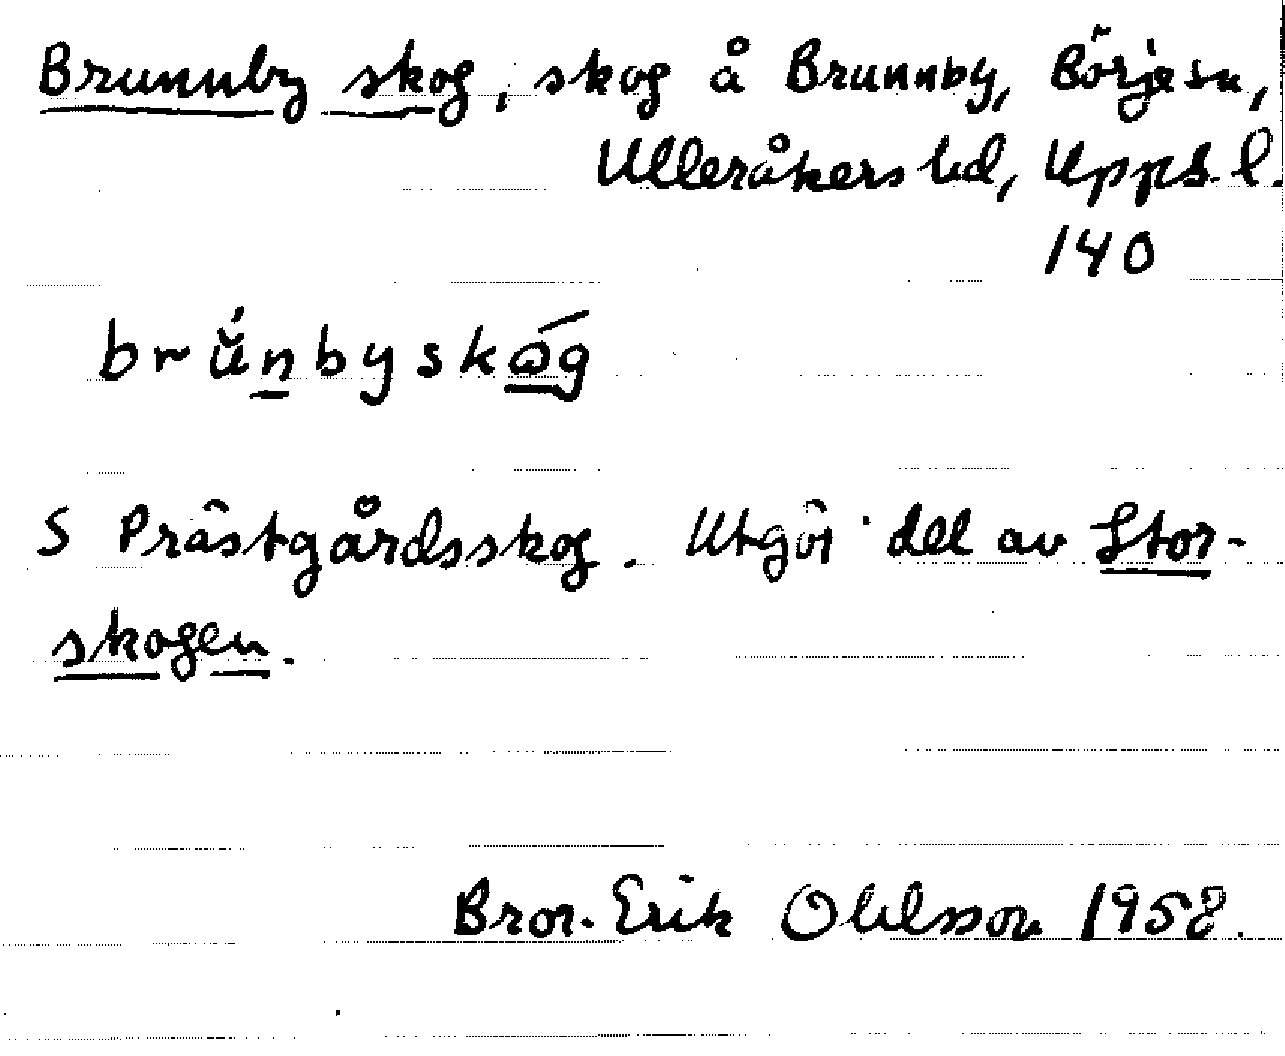 Brunnby skog, skog å Brunnby, Börje sn,
Ulleråkers hd, Upps. l.
140
brŭ́n̲byskɷ̲́g
S Prästgårdsskog. Utgör del av Stor-
skogen.
Bror-Erik Ohlsson 1958.